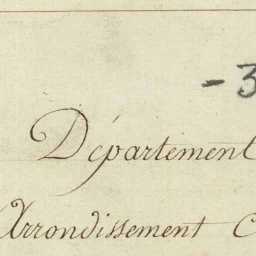 - 3
Département
Arrondissement C